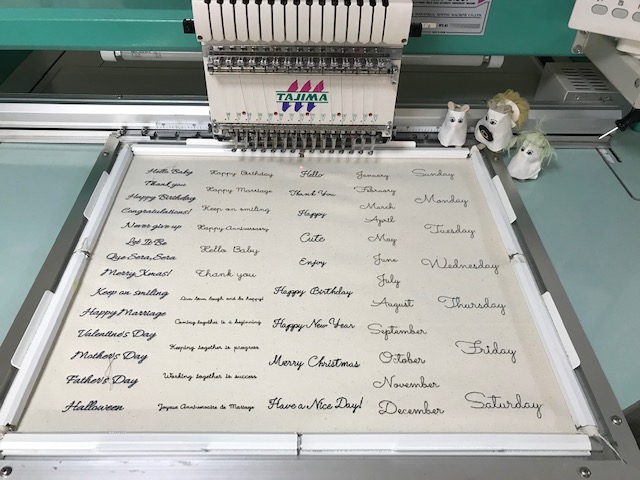 TAJIMA
Hello Baby
Thank you
Happy Birthday
Congratulations!
Never give up
Let It Be
Que Sera, Sera
Merry Xmas!
Keep on smiling
Happy Marriage
Valentine's Day
Mother's Day
Father's Day
Halloween
Happy Birthday
Happy Marriage
Keep on smiling
Happy Anniversary
Hello Baby
Thank you
Live, love, laugh and be happy!
Coming together is a beginning
Keeping together is progress
Working together is success
Joyeux Anniversaire de Mariage
Hello
Thank You
Happy
Cute
Enjoy
Happy Birthday
Happy New Year
Merry Christmas
Have a Nice Day!
January
February
March
April
May
June
July
August
September
October
November
December
Sunday
Monday
Tuesday
Wednesday
Thursday
Friday
Saturday